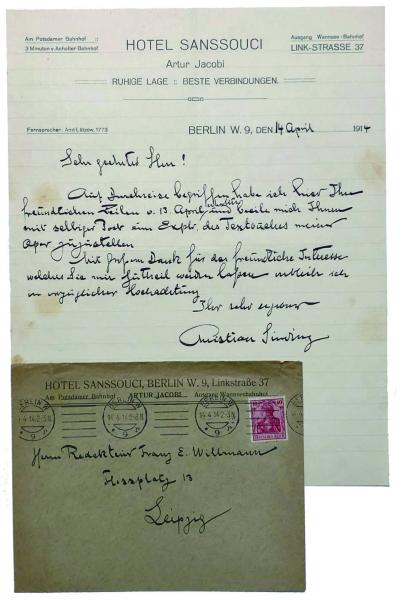 Am Potsdamer Bahnhof ::
3 Minuten v. Anhalter-Bahnhof
HOTEL SANSSOUCI
Artur Jacobi
Ausgang Wannsee-Bahnhof
LINK-STRASSE 37
RUHIGE LAGE :: BESTE VERBINDUNGEN.
Fernsprecher: Amt Lützow, 1773
BERLIN W. 9, DEN 14 April 1914
Sehr geehrter Herr!
Auf Durchreise begriffen habe ich hier Ihre
freundlichen Zeilen v. 13. April erhalten und beeile mich Ihnen
mit selbiger Post ein Explr. des Textbuches meiner
Oper zuzustellen
Mit großem Dank für das freundliche Interesse
welches Sie mir zutheil werden laßen verbleibe ich
in vorzüglicher Hochachtung
Ihr sehr ergebener
Christian Sinding
HOTEL SANSSOUCI, BERLIN W. 9, Linkstraße 37
Am Potsdamer Bahnhof ARTUR JACOBI Ausgang Wannseebahnhof
BERLIN W
14.4.14.2-3N
9
DEUTSCHES REICH
Herrn Redakteur Franz E. Willmann
Flossplatz 13
Leipzig